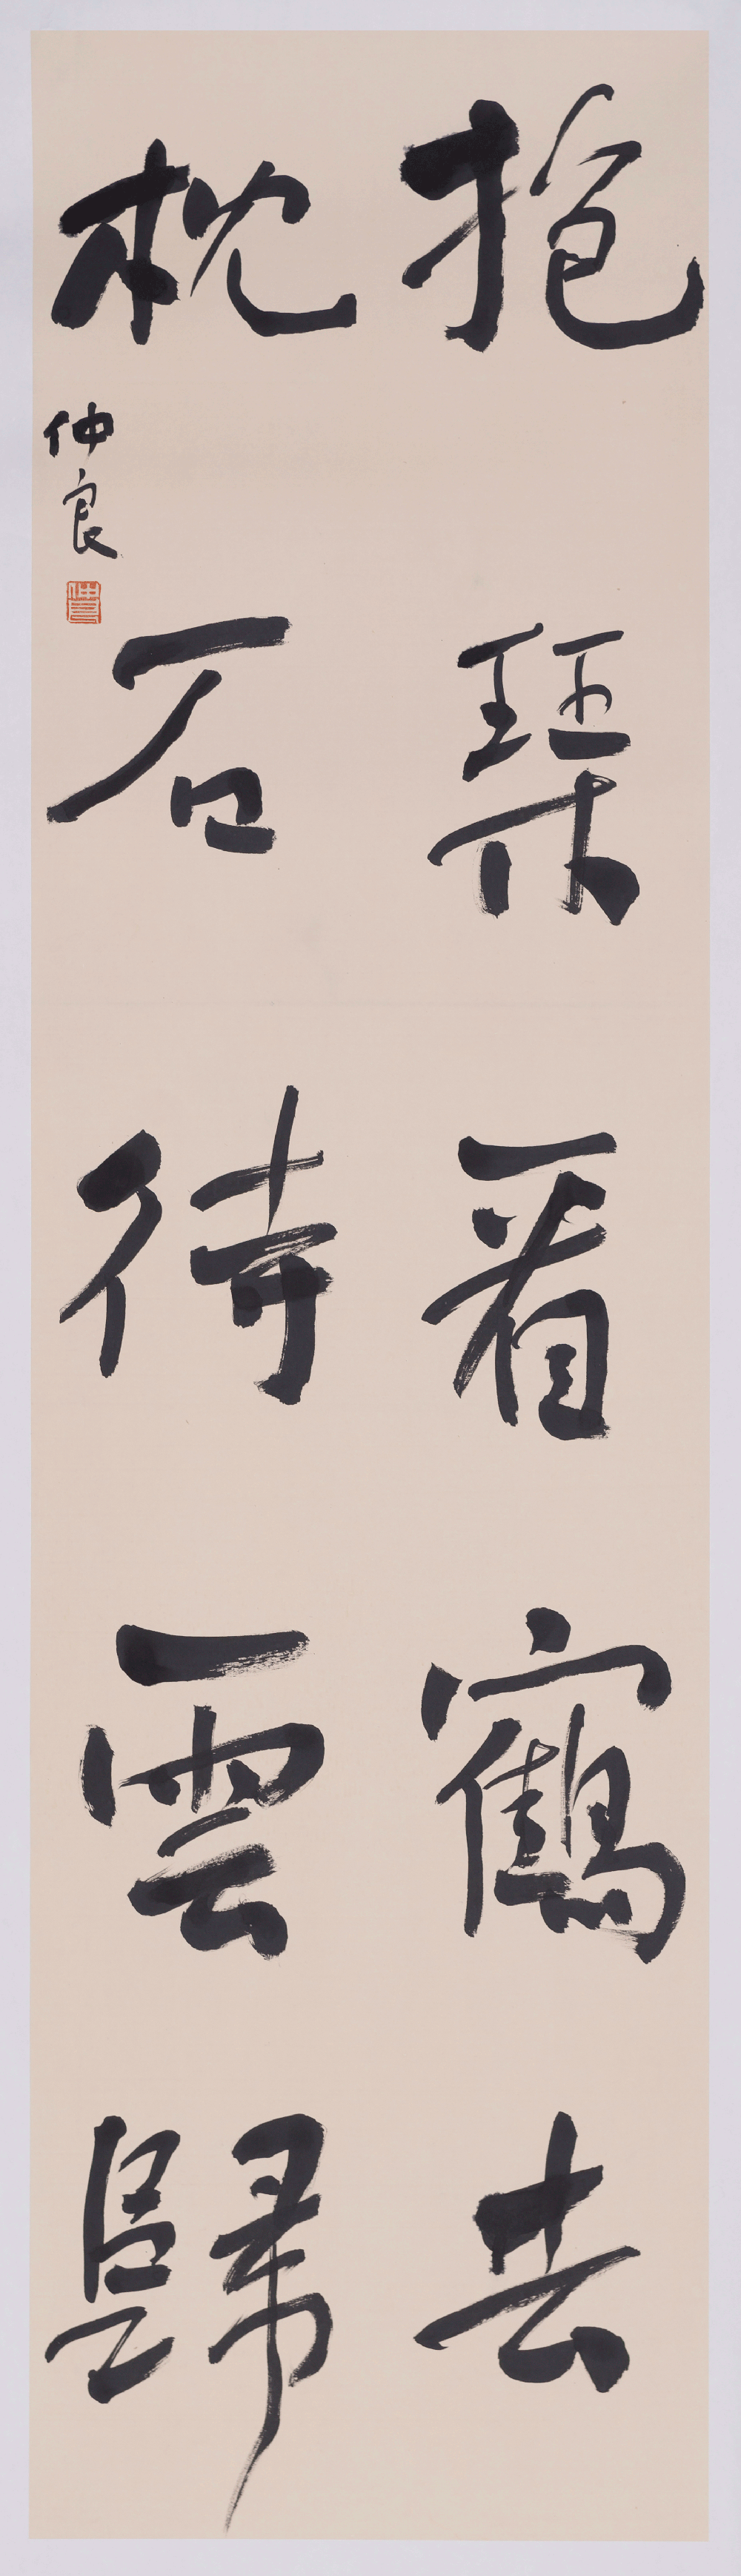 抱琹看鶴去
枕石待雲歸
仲良